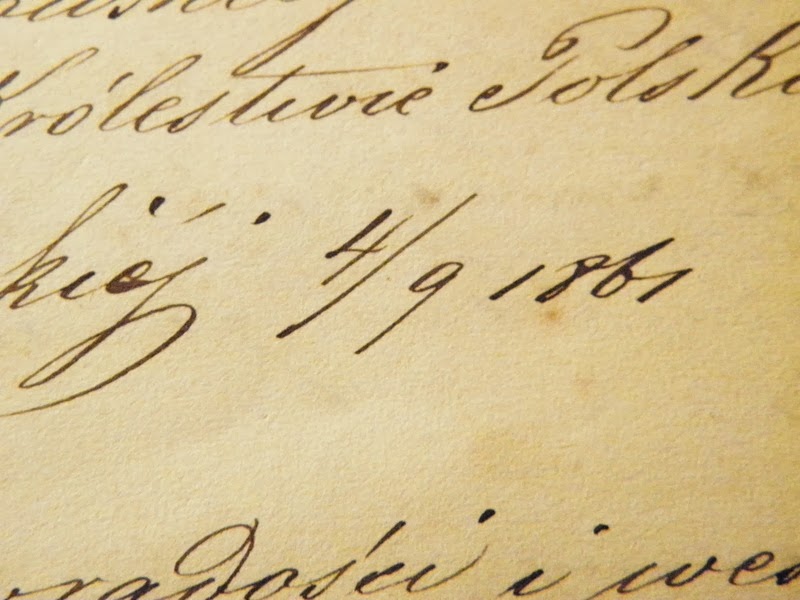 Królestwie Polski
kiéj 4/9 1861
radości i we